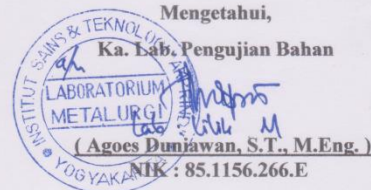 Mengetahui,
Ka. Lab. Pengujian Bahan
INSTITUT SAINS & TEKNOLOGI
LABORATORIUM
METALURGI
YOGYAKARTA
( Agoes Duniawan, S.T., M.Eng. )
NIK : 85.1156.266.E